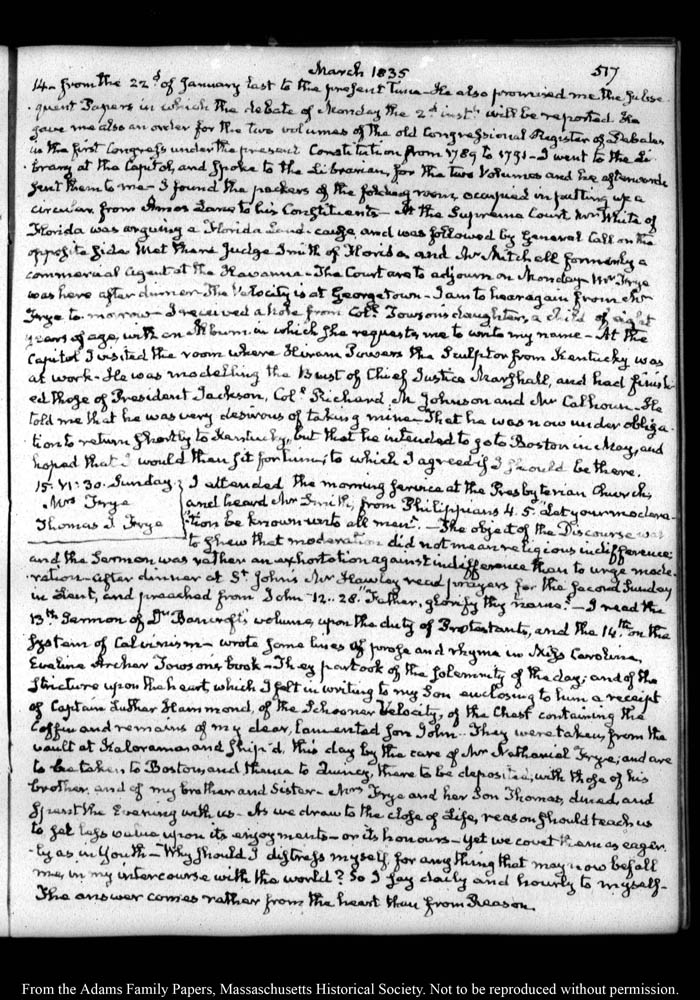 March 1835 517
14. from the 22d. of January last to the present time. He also promised me the subse-
quent Papers in which the debate of Monday the 2d. instt. will be reported. He
gave me also an order for the two volumes of the old Congressional Register of Debates
in the first Congress under the present Constitution from 1789 to 1791 – I went to the Li-
brary at the Capitol, and spoke to the Librarian, for the two Volumes and he afterwards
sent them to me – I found the packers of the folding room, occupied in putting up a
circular, from Amos Lane to his Constituents – At the Supreme Court Mr. White of
Florida was arguing a Florida Land-cause, and was followed by General Call on the
opposite side. Met there Judge Smith of Florida and Mr Mitchell formerly a
commercial Agent at the Havanna – The Court are to adjourn on Monday. Mr. Frye
was here after dinner – The Velocity is at Georgetown – I am to hear again from Mr
Frye to-morrow – I received a Note from Coll. Towson's daughter, a child of eight
years of age, with an Album in which she requests me to write my name – At the
Capitol I visited the room where Hiram Powers the Sculptor from Kentucky was
at work – He was modelling the bust of Chief Justice Marshall, and had finish-
ed those of President Jackson, Coll. Richard M. Johnson and Mr Calhoun – He
told me that he was very desirous of taking mine – That he was now under obliga-
tion to return shortly to Kentucky, but that he intended to go to Boston in May, and
hoped that I would then sit for him; to which I agreed if I should be there.
15. VI:30. Sunday I attended the morning service at the Presbyterian Church,
Mrs Frye and heard Mr Smith, from Philippians 4.5. Let your modera-
Thomas J. Frye tion be known unto all men". – The object of the Discourse was
to shew that moderation did not mean religious indifference;
and the Sermon was rather an exhortation against indifference than to urge mode-
ration – after dinner at St. John's Mr Hawley read prayers for the second Sunday
in Lent, and preached from John 12.28. "Father, glorify thy name." – I read the
13th. Sermon of Dr Bancroft's volume, upon the duty of Protestants, and the 14th. on the
System of Calvinism – wrote some lines of prose and rhyme in Miss Caroline,
Eveline Archer Towson's book – They partook of the solemnity of the day; and of the
stricture upon the heart, which I felt in writing to my Son enclosing to him a receipt
of Captain Luther Hammond, of the Schooner Velocity, of the Chest containing the
Coffin and remains of my dear, lamented son John – They were taken, from the
vault at Kalorama and ship'd, this day by the care of Mr Nathaniel Frye; and are
to be taken, to Boston, and thence to Quincy, there to be deposited, with those of his
brother, and of my brother and Sister – Mrs Frye and her Son Thomas, dined, and
spent the Evening with us – As we draw to the close of Life, reason should teach us
to set less value upon its enjoyments – or its honours – yet we covet them as eager-
ly as in Youth – Why should I distress myself, for any thing that may now befall
me, in my intercourse with the world? So I say daily and hourly to myself –
The answer comes rather from the heart than from Reason.
From the Adams Family Papers, Massachusetts Historical Society. Not to be reproduced without permission.